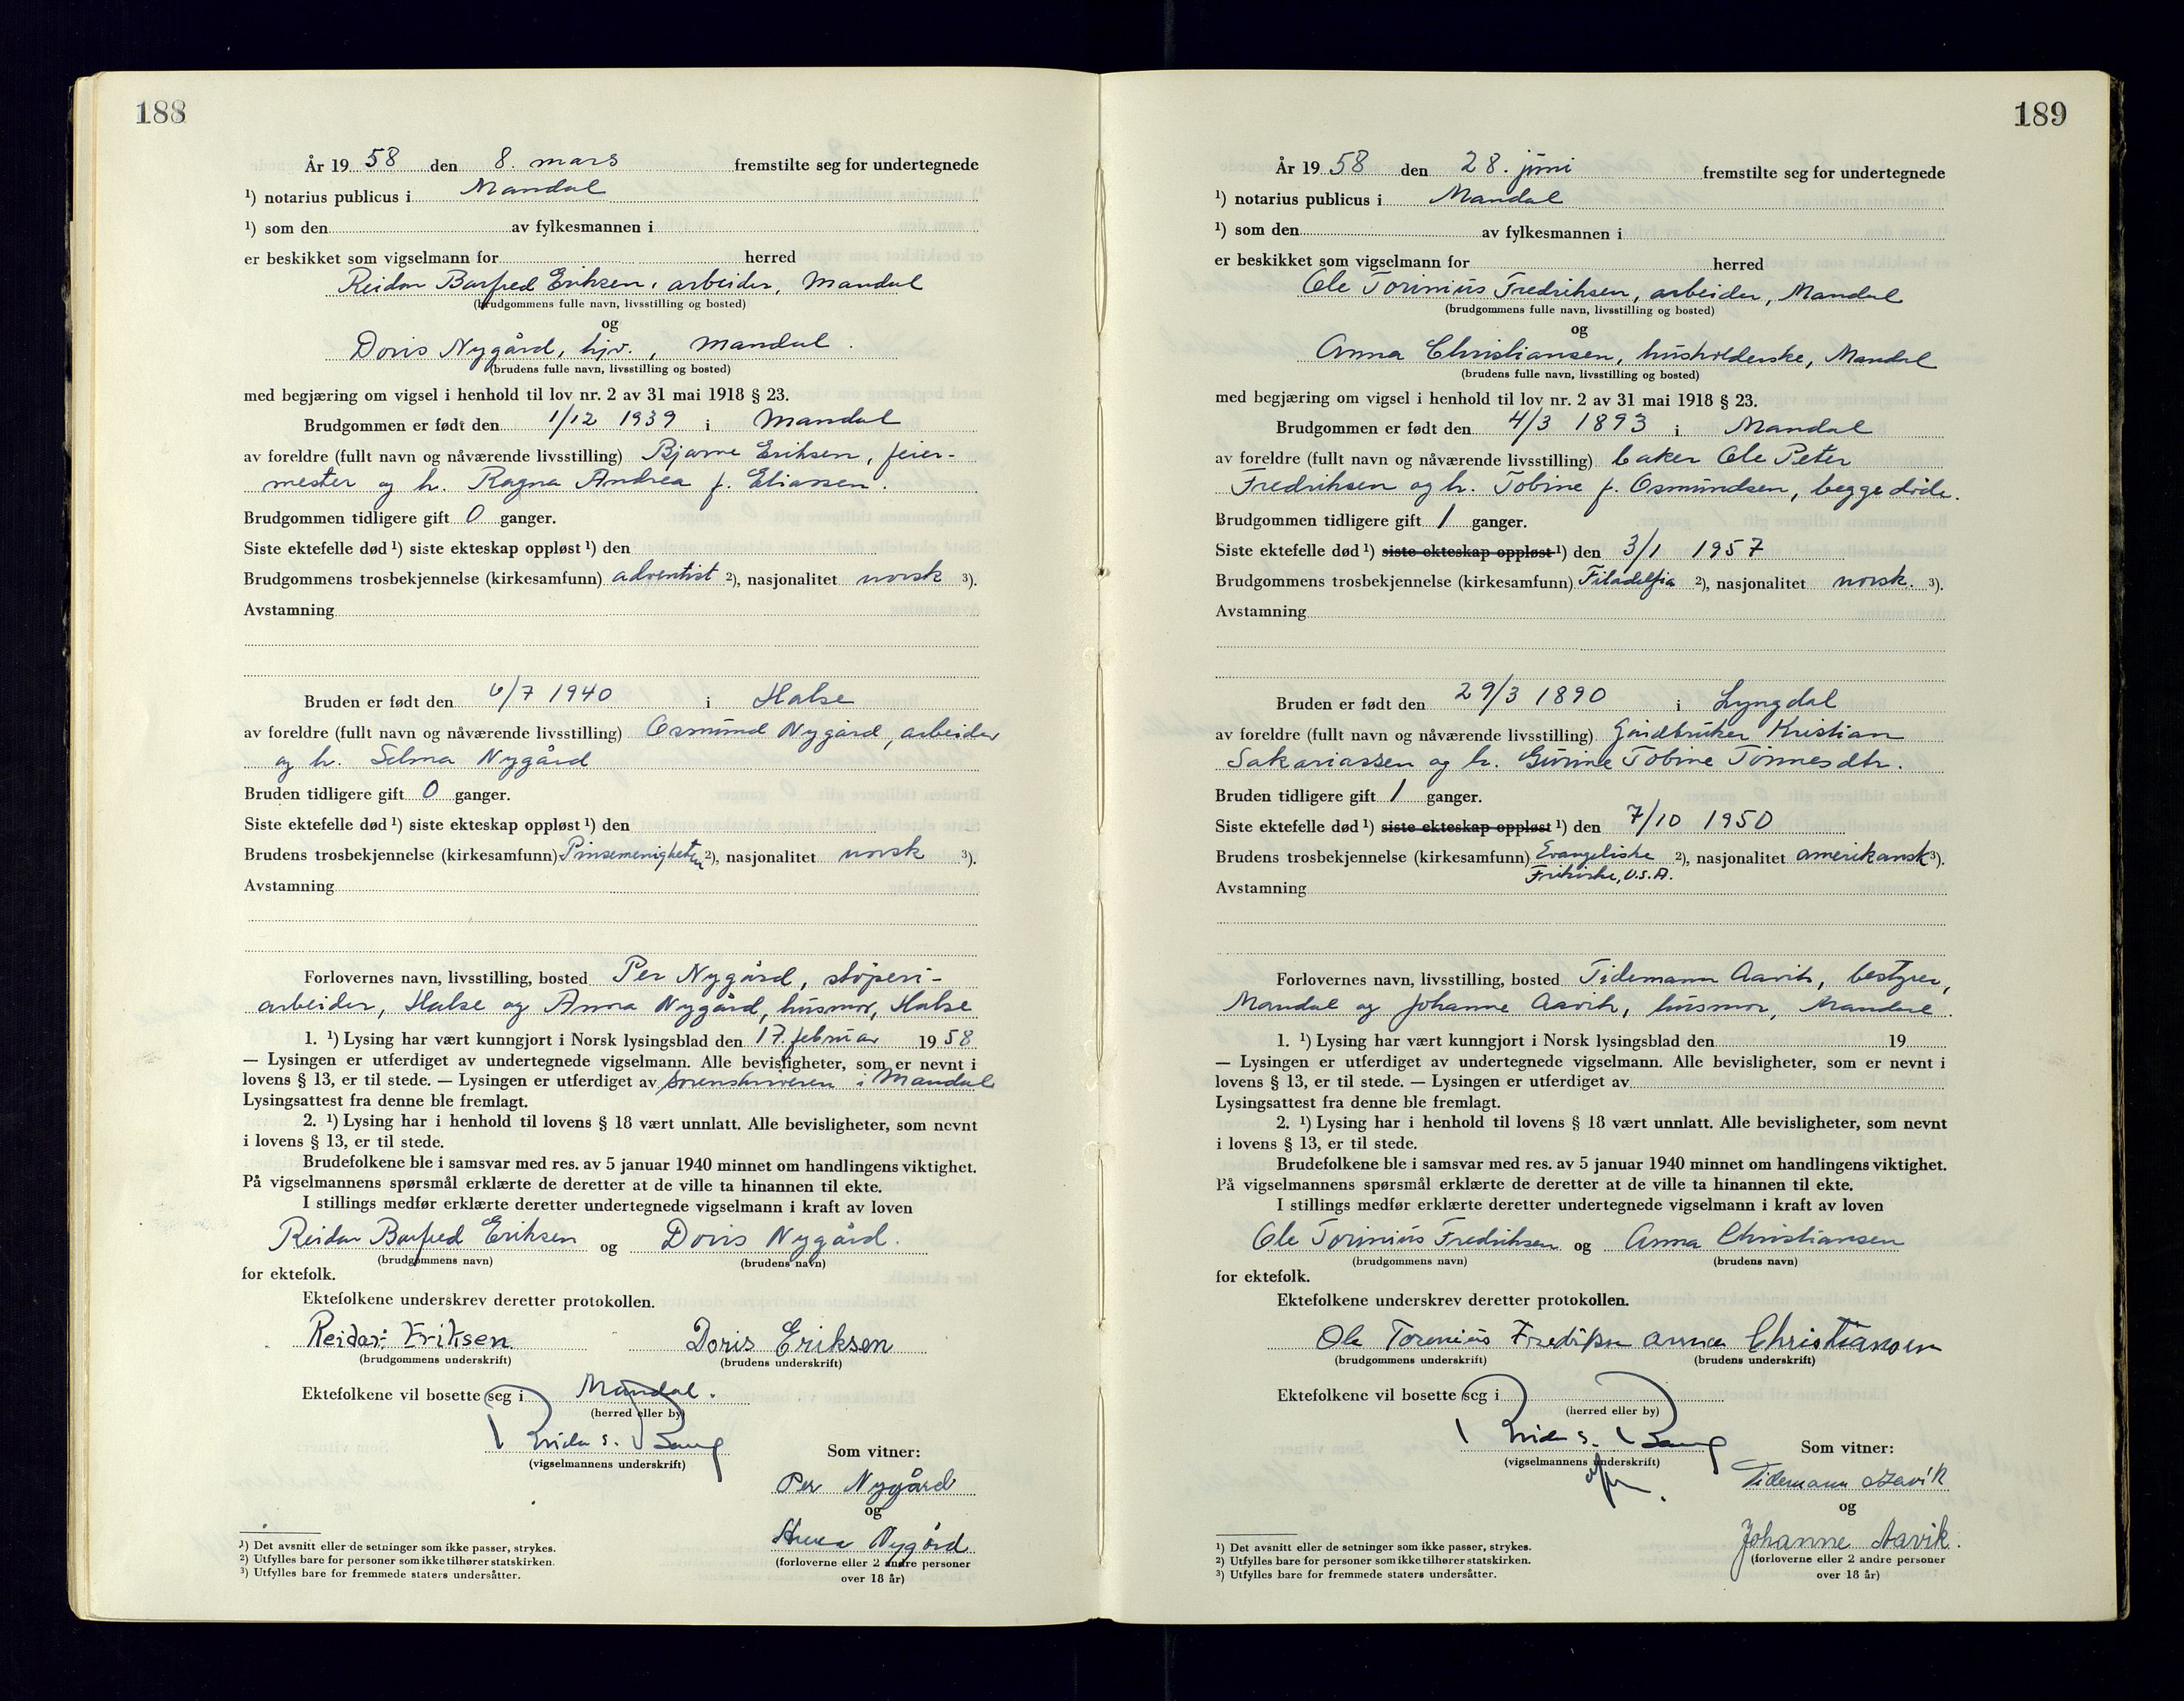 188
År 19 58 den 8. mars fremstilte seg for undertegnede
¹) notarius publicus i Mandal
¹) som den av fylkesmannen i
er beskikket som vigselmann for herred
Reidar Barfred Eriksen, arbeider, Mandal
(brudgommens fulle navn, livsstilling og bosted)
og
Doris Nygård, hjv., Mandal.
(brudens fulle navn, livsstilling og bosted)
med begjæring om vigsel i henhold til lov nr. 2 av 31 mai 1918 § 23.
Brudgommen er født den 1/12 1939 i Mandal
av foreldre (fullt navn og nåværende livsstilling) Bjarne Eriksen, feier-
mester og h. Ragna Andrea f. Eliassen.
Brudgommen tidligere gift 0 ganger.
Siste ektefelle død ¹) siste ekteskap oppløst ¹) den
Brudgommens trosbekjennelse (kirkesamfunn) adventist ²), nasjonalitet norsk ³).
Avstamning
Bruden er født den 6/7 1940 i Halse
av foreldre (fullt navn og nåværende livsstilling) Osmund Nygård, arbeider
og h. Selma Nygård
Bruden tidligere gift 0 ganger.
Siste ektefelle død ¹) siste ekteskap oppløst ¹) den
Brudens trosbekjennelse (kirkesamfunn) Pinsemenigheten ²), nasjonalitet norsk ³).
Avstamning
Forlovernes navn, livsstilling, bosted Per Nygård, støperi-
arbeider, Halse og Anna Nygård, husmor, Halse
1. ¹) Lysing har vært kunngjort i Norsk lysingsblad den 17. februar 19 58
— Lysingen er utferdiget av undertegnede vigselmann. Alle bevisligheter, som er nevnt i
lovens § 13, er til stede. — Lysingen er utferdiget av sorenskriveren i Mandal
Lysingsattest fra denne ble fremlagt.
2. ¹) Lysing har i henhold til lovens § 18 vært unnlatt. Alle bevisligheter, som nevnt
i lovens § 13, er til stede.
Brudefolkene ble i samsvar med res. av 5 januar 1940 minnet om handlingens viktighet.
På vigselmannens spørsmål erklærte de deretter at de ville ta hinannen til ekte.
I stillings medfør erklærte deretter undertegnede vigselmann i kraft av loven
Reidar Barfred Eriksen og Doris Nygård.
(brudgommens navn) (brudens navn)
for ektefolk.
Ektefolkene underskrev deretter protokollen.
Reidar Eriksen Doris Eriksen
(brudgommens underskrift) (brudens underskrift)
Ektefolkene vil bosette seg i Mandal.
(herred eller by)
(vigselmannens underskrift)
Som vitner:
Per Nygård
og
Anna Nygård
(forloverne eller 2 andre personer
over 18 år)
¹) Det avsnitt eller de setninger som ikke passer, strykes.
²) Utfylles bare for personer som ikke tilhører statskirken.
³) Utfylles bare for fremmede staters undersåtter.
189
År 19 58 den 28. juni fremstilte seg for undertegnede
¹) notarius publicus i Mandal
¹) som den av fylkesmannen i
er beskikket som vigselmann for herred
Ole Torinius Fredriksen, arbeider, Mandal
(brudgommens fulle navn, livsstilling og bosted)
og
Anna Christiansen, husholderske, Mandal
(brudens fulle navn, livsstilling og bosted)
med begjæring om vigsel i henhold til lov nr. 2 av 31 mai 1918 § 23.
Brudgommen er født den 4/3 1893 i Mandal
av foreldre (fullt navn og nåværende livsstilling) baker Ole Peter
Fredriksen og h. Tobine f. Osmundsen, begge døde.
Brudgommen tidligere gift 1 ganger.
Siste ektefelle død ¹) siste ekteskap oppløst ¹) den 3/1 1957
Brudgommens trosbekjennelse (kirkesamfunn) Filadelfia ²), nasjonalitet norsk. ³).
Avstamning
Bruden er født den 29/3 1890 i Lyngdal
av foreldre (fullt navn og nåværende livsstilling) Gårdbruker Kristian
Sakariassen og h. Gurine Tobine Tønnesdtr.
Bruden tidligere gift 1 ganger.
Siste ektefelle død ¹) siste ekteskap oppløst ¹) den 7/10 1950
Brudens trosbekjennelse (kirkesamfunn) Evangeliske ²), nasjonalitet amerikansk ³).
Frikirke, U.S.A.
Avstamning
Forlovernes navn, livsstilling, bosted Tidemann Aavik, bestyrer,
Mandal og Johanne Aavik, husmor, Mandal.
1. ¹) Lysing har vært kunngjort i Norsk lysingsblad den 19
— Lysingen er utferdiget av undertegnede vigselmann. Alle bevisligheter, som er nevnt i
lovens § 13, er til stede. — Lysingen er utferdiget av
Lysingsattest fra denne ble fremlagt.
2. ¹) Lysing har i henhold til lovens § 18 vært unnlatt. Alle bevisligheter, som nevnt
i lovens § 13, er til stede.
Brudefolkene ble i samsvar med res. av 5 januar 1940 minnet om handlingens viktighet.
På vigselmannens spørsmål erklærte de deretter at de ville ta hinannen til ekte.
I stillings medfør erklærte deretter undertegnede vigselmann i kraft av loven
Ole Torinius Fredriksen og Anna Christiansen
(brudgommens navn) (brudens navn)
for ektefolk.
Ektefolkene underskrev deretter protokollen.
Ole Torenius Fredriksen Anna Christiansen
(brudgommens underskrift) (brudens underskrift)
Ektefolkene vil bosette seg i
(herred eller by)
(vigselmannens underskrift)
Som vitner:
Tidemann Aavik
og
Johanne Aavik.
(forloverne eller 2 andre personer
over 18 år)
¹) Det avsnitt eller de setninger som ikke passer, strykes.
²) Utfylles bare for personer som ikke tilhører statskirken.
³) Utfylles bare for fremmede staters undersåtter.